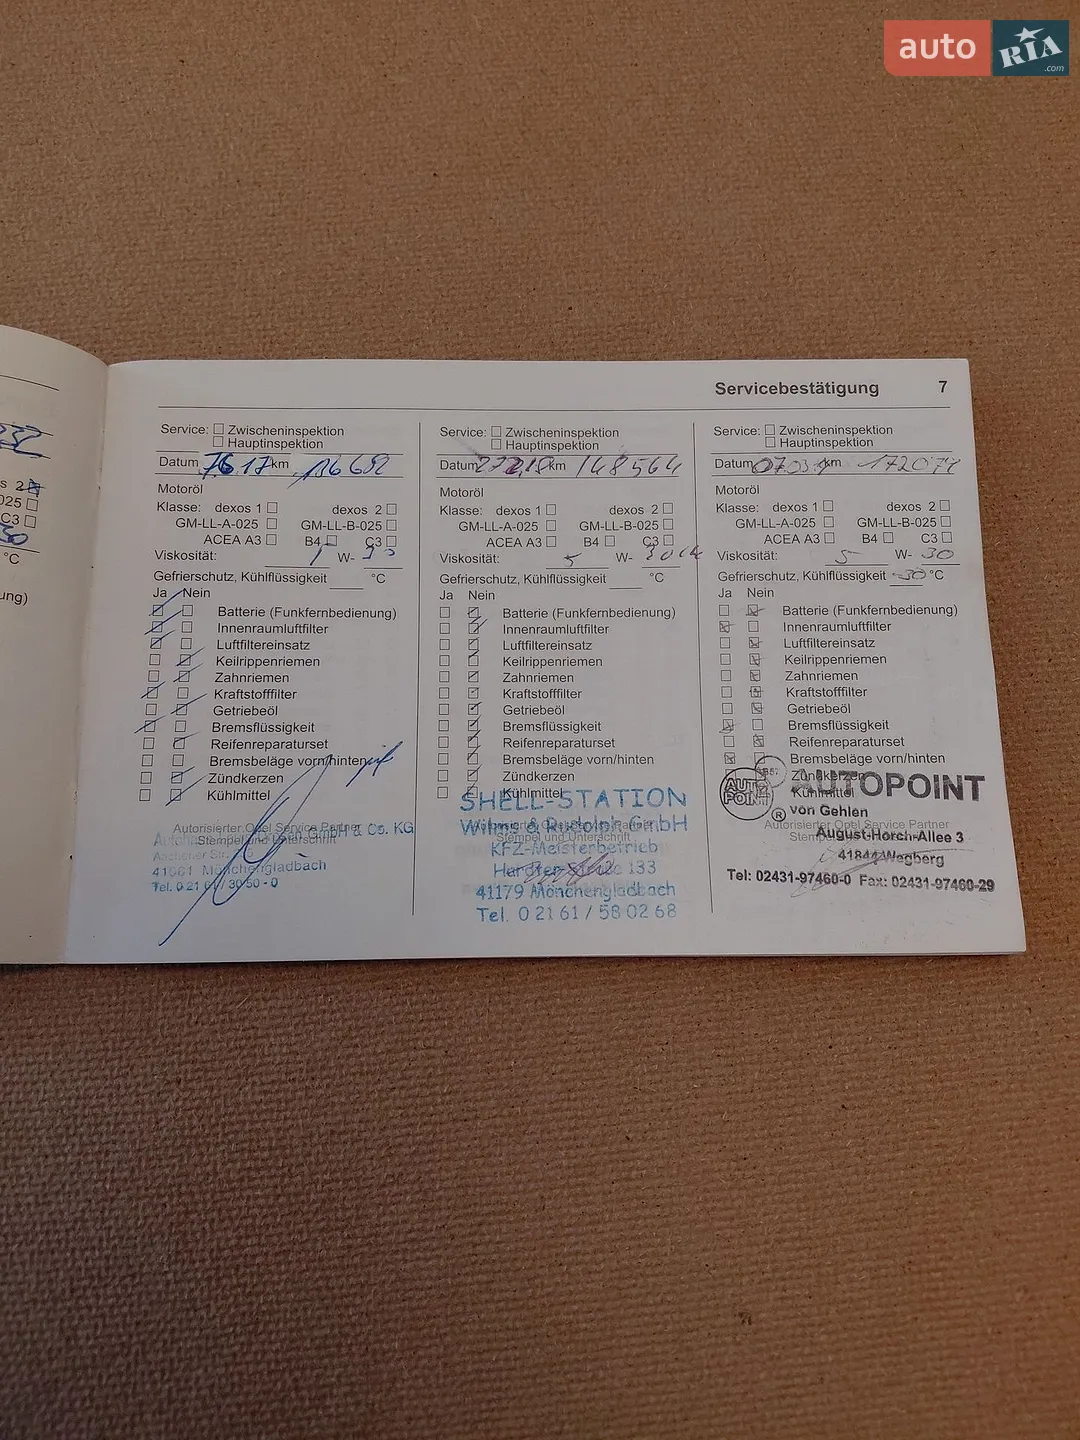 auto RIA .com
Servicebestätigung 7
232
s 2
025
C3
30
°C
ung)
Service: Zwischeninspektion
Hauptinspektion
Datum 7.6.17 km 136692
Motoröl
Klasse: dexos 1 dexos 2
GM-LL-A-025 GM-LL-B-025
ACEA A3 B4 C3
Viskosität: W-
Gefrierschutz, Kühlflüssigkeit °C
Ja Nein
Batterie (Funkfernbedienung)
Innenraumluftfilter
Luftfiltereinsatz
Keilrippenriemen
Zahnriemen
Kraftstofffilter
Getriebeöl
Bremsflüssigkeit
Reifenreparaturset
Bremsbeläge vorn/hinten
Zündkerzen
Kühlmittel
Autorisierter Opel Service Partner
Stempel und Unterschrift
GmbH & Co. KG
41061 Mönchengladbach
Tel. 0 21 61 / 30 50 - 0
Service: Zwischeninspektion
Hauptinspektion
Datum km 148564
Motoröl
Klasse: dexos 1 dexos 2
GM-LL-A-025 GM-LL-B-025
ACEA A3 B4 C3
Viskosität: 5 W- 30
Gefrierschutz, Kühlflüssigkeit °C
Ja Nein
Batterie (Funkfernbedienung)
Innenraumluftfilter
Luftfiltereinsatz
Keilrippenriemen
Zahnriemen
Kraftstofffilter
Getriebeöl
Bremsflüssigkeit
Reifenreparaturset
Bremsbeläge vorn/hinten
Zündkerzen
Kühlmittel
SHELL-STATION
Wilms & Rudolph GmbH
Stempel und Unterschrift
KFZ-Meisterbetrieb
133
41179 Mönchengladbach
Tel. 0 21 61 / 58 02 68
Service: Zwischeninspektion
Hauptinspektion
Datum km 172074
Motoröl
Klasse: dexos 1 dexos 2
GM-LL-A-025 GM-LL-B-025
ACEA A3 B4 C3
Viskosität: 5 W- 30
Gefrierschutz, Kühlflüssigkeit -30 °C
Ja Nein
Batterie (Funkfernbedienung)
Innenraumluftfilter
Luftfiltereinsatz
Keilrippenriemen
Zahnriemen
Kraftstofffilter
Getriebeöl
Bremsflüssigkeit
Reifenreparaturset
Bremsbeläge vorn/hinten
Zündkerzen
Kühlmittel
AUTO POINT ® AUTOPOINT
von Gehlen
Autorisierter Opel Service Partner
August-Horch-Allee 3
41844 Wegberg
Tel: 02431-97460-0 Fax: 02431-97460-29